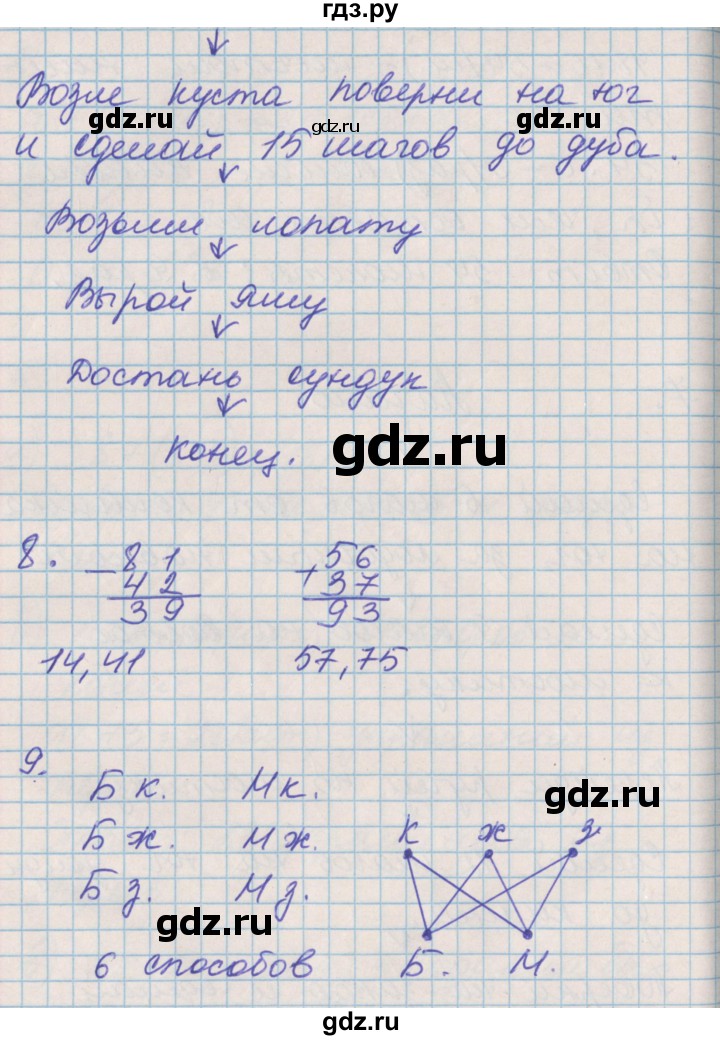 гдз.ру
Возле куста поверни на юг
gdz.ru
gdz.ru
и сделай 15 шагов до дуба.
gdz.ru
Возьми лопату
Вырой яму
Достань сундук
конец.
gdz.ru
8. 81 56
- 42 + 37
39 93
14, 41 57, 75
9.
Б к. М к.
gdz.ru
Б ж. М ж.
к ж з
Б з. М з.
gdz.ru
6 способов Б. М.
gdz.ru